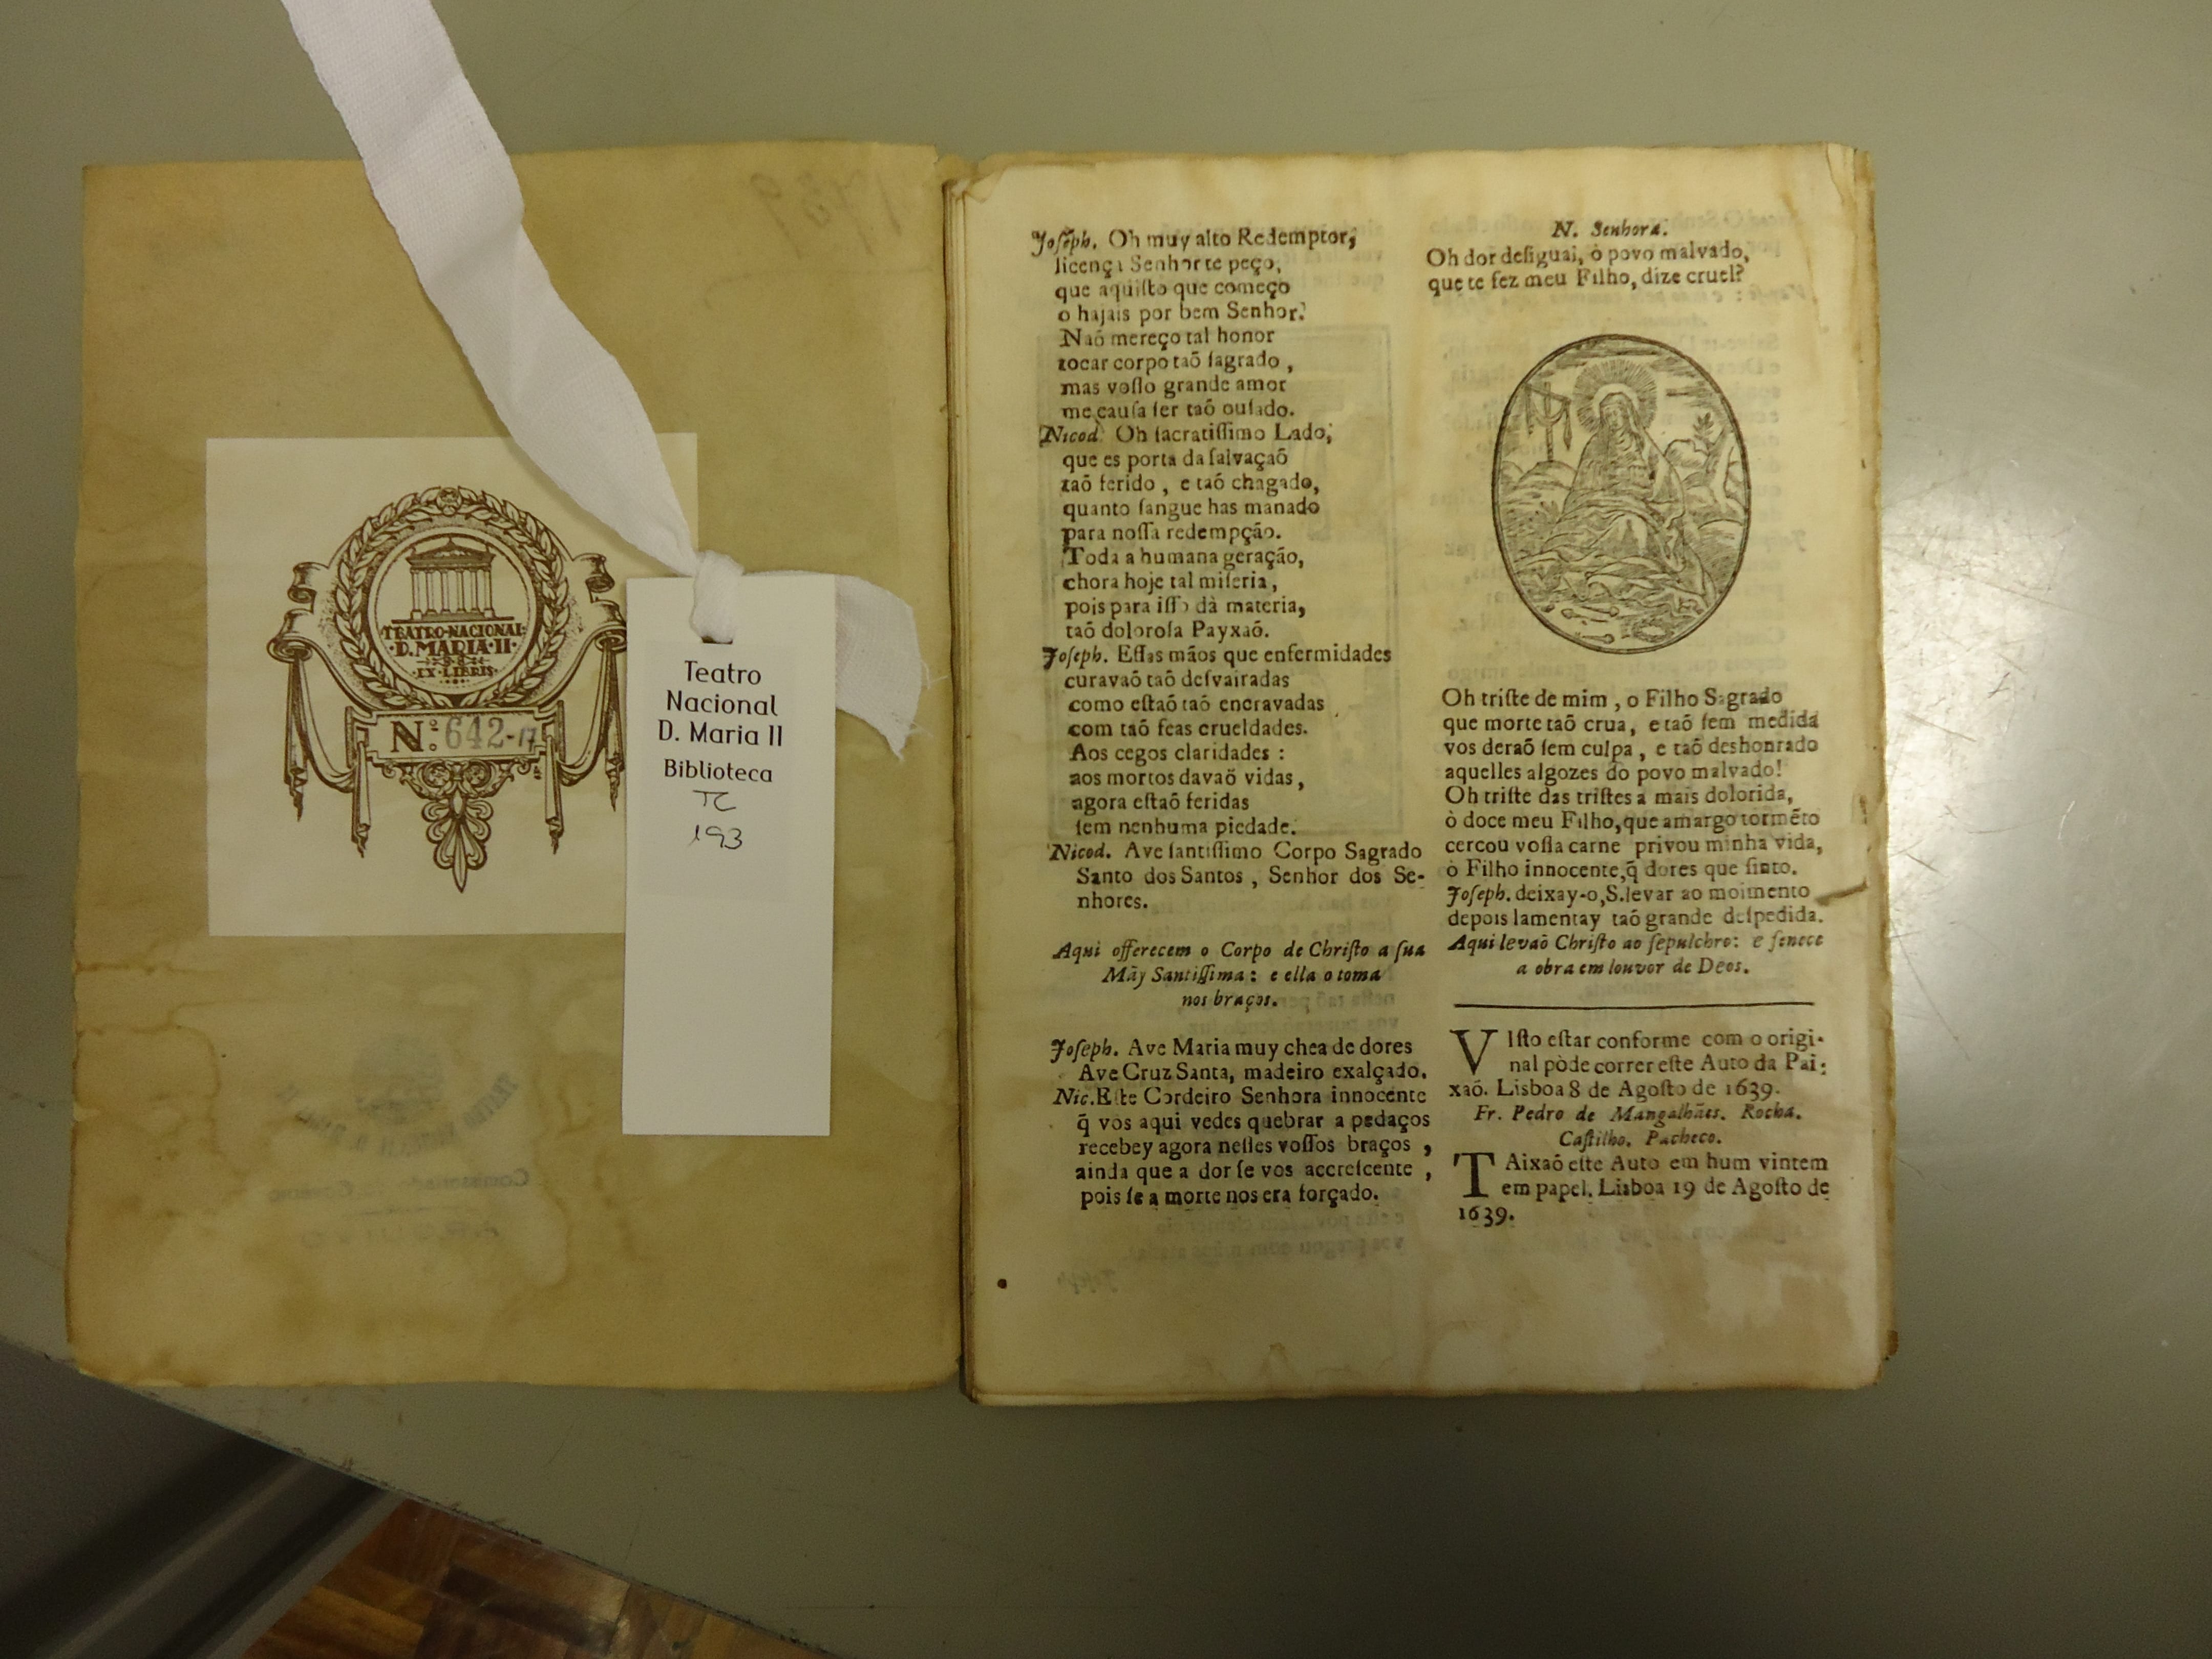 TEATRO·NACIONAL·
·D.MARIA·II·
·EX·LIBRIS·
Nº: 642-17
Teatro
Nacional
D. Maria II
Biblioteca
TC
193
Joſeph. Oh muy alto Redemptor,
licença Senhor te peço,
que aquiſto que começo
o hajais por bem Senhor.
Naõ mereço tal honor
tocar corpo taõ ſagrado ,
mas voſſo grande amor
me cauſa ſer taõ ouſado.
Nicod. Oh ſacratiſſimo Lado,
que es porta da ſalvaçaõ
taõ ferido , e taõ chagado,
quanto ſangue has manado
para noſſa redempção.
Toda a humana geração,
chora hoje tal miſeria ,
pois para iſſo dà materia,
taõ doloroſa Payxaõ.
Joſeph. Eſſas mãos que enfermidades
curavaõ taõ deſvairadas
como eſtaõ taõ encravadas
com taõ feas crueldades.
Aos cegos claridades :
aos mortos davaõ vidas ,
agora eſtaõ feridas
ſem nenhuma piedade.
Nicod. Ave ſantiſſimo Corpo Sagrado
Santo dos Santos , Senhor dos Se-
nhores.
Aqui offerecem o Corpo de Chriſto a ſua
Mãy Santiſſima : e ella o toma
nos braços.
Joſeph. Ave Maria muy chea de dores
Ave Cruz Santa, madeiro exalçado.
Nic. Eſte Cordeiro Senhora innocente
q̃ vos aqui vedes quebrar a pedaços
recebey agora neſſes voſſos braços ,
ainda que a dor ſe vos accreſcente ,
pois ſe a morte nos era forçado.
N. Senhora.
Oh dor deſigual, ò povo malvado,
que te fez meu Filho, dize cruel?
Oh triſte de mim , o Filho Sagrado
que morte taõ crua, e taõ ſem medida
vos deraõ ſem culpa , e taõ deshonrado
aquelles algozes do povo malvado!
Oh triſte das triſtes a mais dolorida,
ò doce meu Filho, que amargo tormẽto
cercou voſſa carne privou minha vida,
ò Filho innocente, q̃ dores que ſinto.
Joſeph. deixay-o, S. levar ao moimento
depois lamentay taõ grande deſpedida.
Aqui levaõ Chriſto ao ſepulchro: e fenece
a obra em louvor de Deos.
VIſto eſtar conforme com o origi-
nal pòde correr eſte Auto da Pai-
xaõ. Lisboa 8 de Agoſto de 1639.
Fr. Pedro de Mangalhães. Rocha.
Caſtilho. Pacheco.
TAixaõ eſte Auto em hum vintem
em papel. Lisboa 19 de Agoſto de
1639.